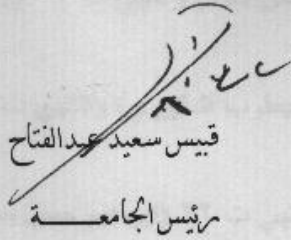 قبيس سعيد عبدالفتاح
رئيس الجامعـــة